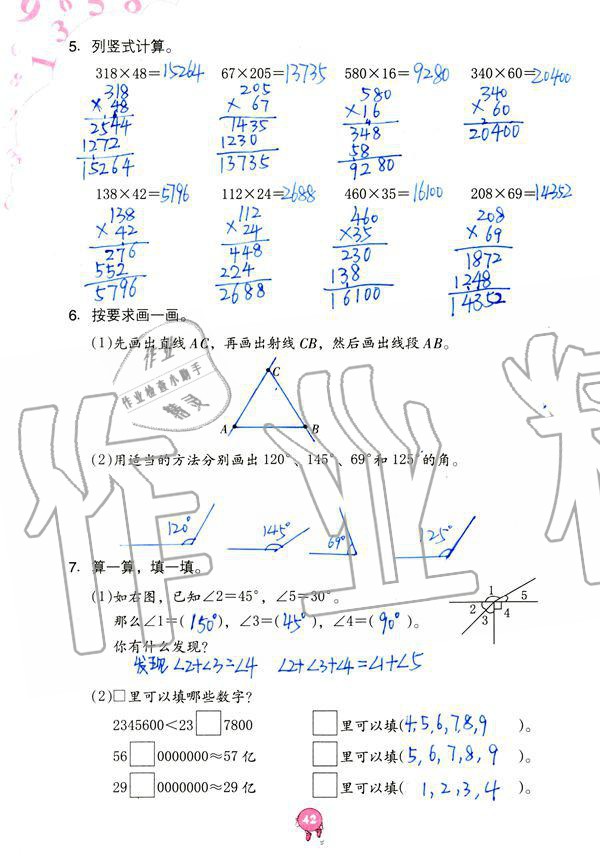 5. 列竖式计算。
318×48=15264 67×205=13735 580×16=9280 340×60=20400
318 205 580 340
×48 × 67 ×16 × 60
2544 1435 348 20400
1272 1230 58
15264 13735 9280
138×42=5796 112×24=2688 460×35=16100 208×69=14352
138 112 460 208
× 42 × 24 ×35 × 69
276 448 230 1872
552 224 138 1248
5796 2688 16100 14352
6. 按要求画一画。
(1)先画出直线AC,再画出射线CB,然后画出线段AB。
C
A B
(2)用适当的方法分别画出120°、145°、69°和125°的角。
120° 145° 69° 125°
7. 算一算,填一填。
(1)如右图,已知∠2=45°,∠5=30°。
那么∠1=(150°),∠3=(45°),∠4=(90°)。
1 5
2 4
3
你有什么发现?
发现∠2+∠3=∠4 ∠2+∠3+∠4=∠1+∠5
(2)□里可以填哪些数字?
2345600<23□7800 □里可以填(4,5,6,7,8,9)。
56□0000000≈57亿 □里可以填(5,6,7,8,9)。
29□0000000≈29亿 □里可以填(1,2,3,4)。
42
作业
作业检查小助手
精灵
作业精